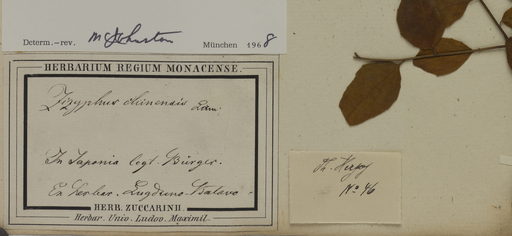 Determ.—rev. M. Johnston München 1968
HERBARIUM REGIUM MONACENSE.
Zizyphus chinensis Lam:
In Japonia legt. Bürger.
Ex Herbar. Lugduno-Batavo-
HERB. ZUCCARINII.
Herbar. Univ. Ludov. Maximil.
No 46